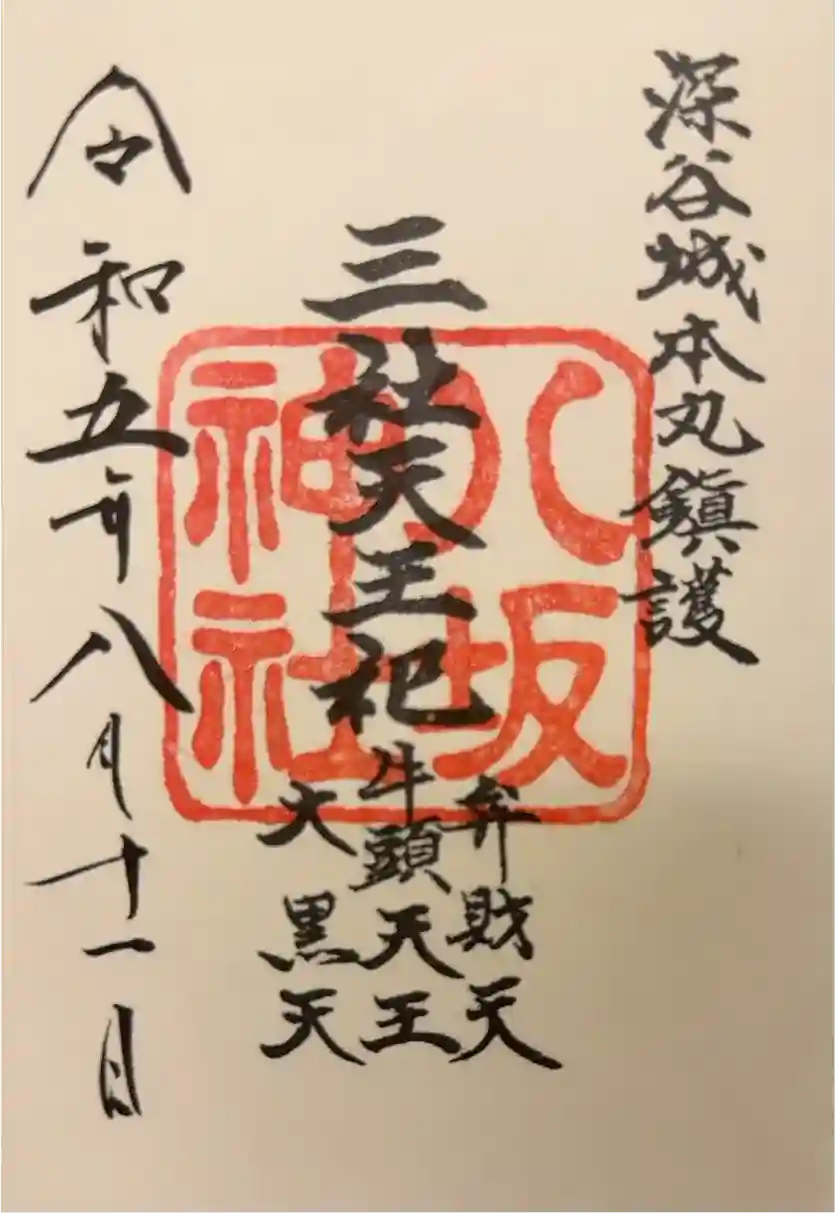 深谷城本丸鎮護
三社天王祀
弁財天
牛頭天王
大黒天
八坂
神社
令和五年八月十一日